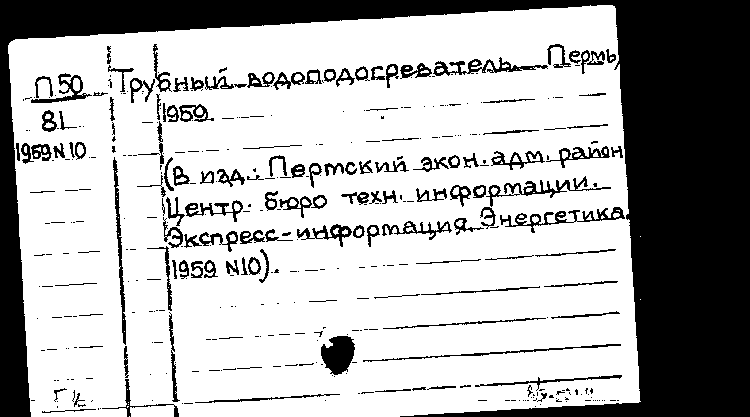 П 50
81
1959 N 10
Трубный водоподогреватель. Пермь,
1959.
(В изд.: Пермский экон. адм. район
Центр. бюро техн. информации.
Экспресс-информация. Энергетика.
1959 N10).